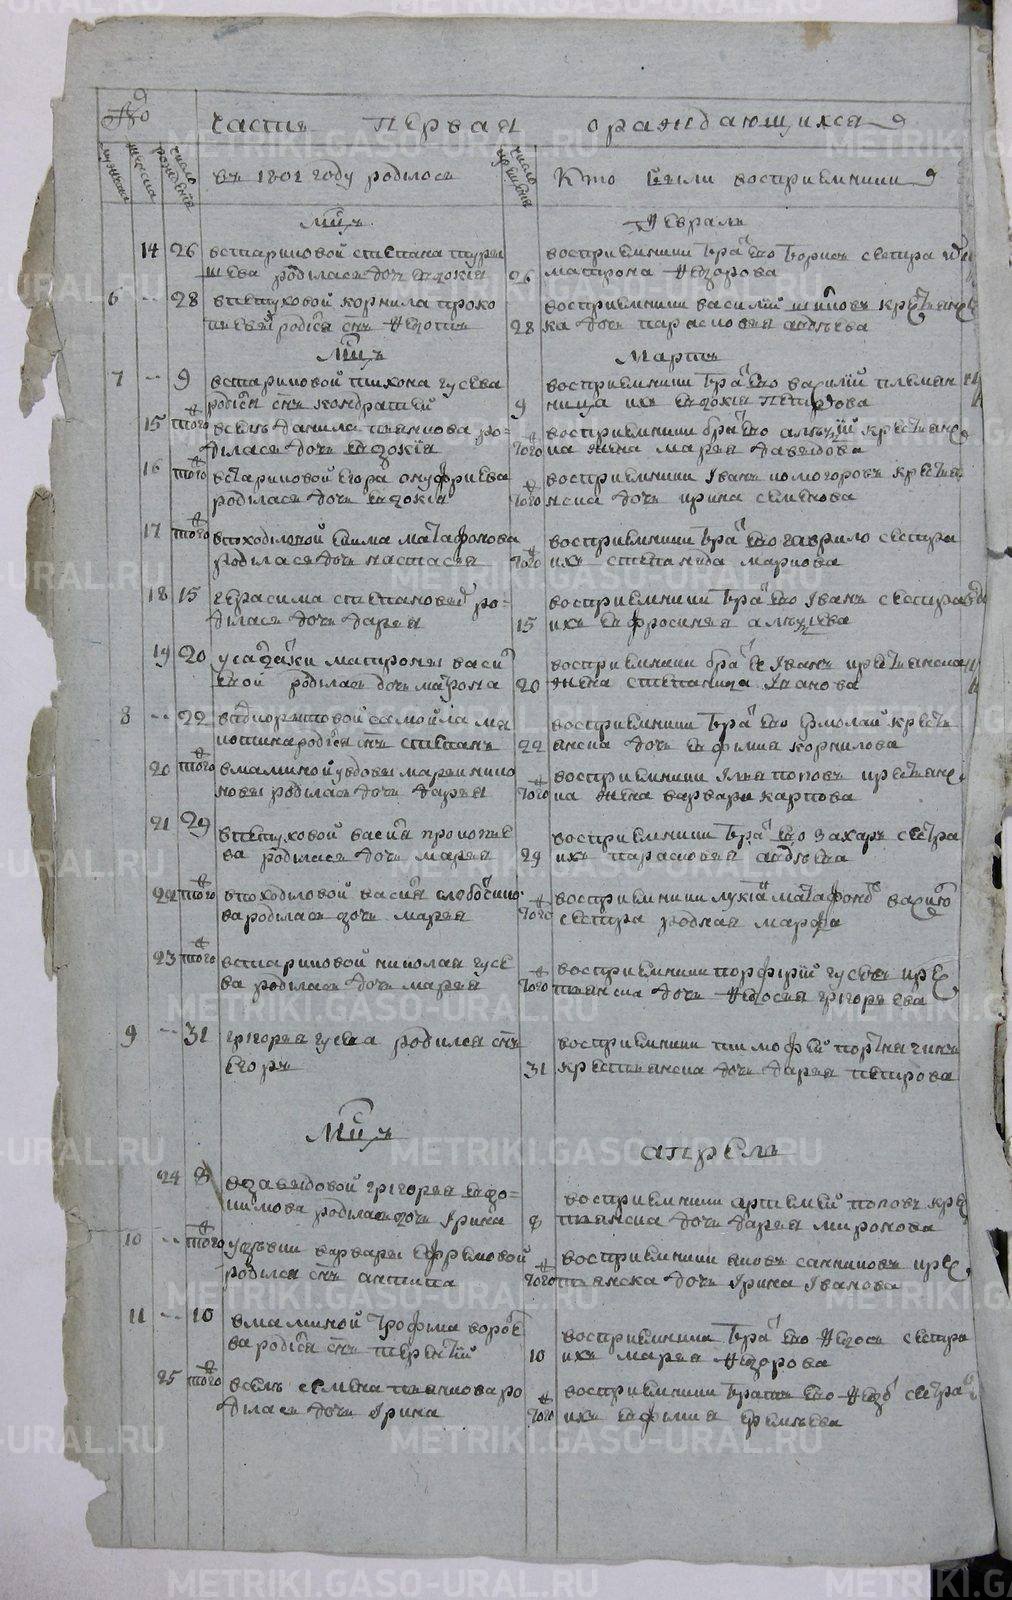 №
часть первая о раждающихся
мужеска
женска
число рождениѧ
въ 1801 году родилось
число крещениѧ
Кто были восприемники
Мцъ Февраль
14 26 встариковой степана
родилась дочь евдокіѧ
26
восприемники братъ ево борисъ сестра
матрона федорова
6 -- 28 впетуховой корнила проко
пьева родисѧ снъ федотъ
28
восприемники василіи
ка дочь парасковьѧ
Мцъ Мартъ
7 -- 9 встариковой тихона гусева
родисѧ снъ кондратей
9
восприемники братъ ево василіи племѧн
ница ихъ евдокіѧ петрова
15 того вселѣ данила пьѧнкова ро-
дилась дочь евдокіѧ
того
восприемники братъ ево алѣѯіи крестьѧнс
ка жена марьѧ давыдова
16 того встариковой егора онуфриева
родилась дочь евдокіѧ
того
восприемники іванъ номогоровъ крестьѧ
нска дочь ирина семенова
17 того впоходиловой екима матафонова
родилась дочь настасьѧ
того
восприемники братъ ево гаврило сестра
ихъ степанида маркова
18 15 герасима степановыхъ ро-
дилась дочь дарьѧ
15
восприемники братъ ево іванъ сестра
ихъ евфросиньѧ алѣѯіева
19 20 у салдатки матроны васи
евой родилась дочь матрона
20
восприемники братъ ее іванъ крестьѧнска
жена степанида іванова
8 -- 22 самоила мѧ
кишина родисѧ снъ степанъ
22
восприемники братъ ево ермолай кресть
ѧнска дочь евфимиѧ корнилова
20 того вмаминой у вдовы марьи нико
новы родилась дочь дарьѧ
того
восприемники ильѧ поповъ крестьѧнс
ка жена варвара карпова
21 29 впетуховой васи прокопье
ва родилась дочь марьѧ
29
восприемники братъ ево захаръ сестра
ихъ парасковьѧ авдѣева
22 того впоходиловой васи слободчико
ва родилась дочь марьѧ
того
восприемники лукіѧ матафоновъ
сестра родная марфа
23 того встариковой николаѧ гусе
ва родилась дочь марьѧ
того
восприемники порфиріи гусевъ кре
стьѧнска дочь федосьѧ григорьева
9 -- 31 григорьѧ гусева родилсѧ снъ
егоръ
31
восприемники тимофей портнѧгинъ
крестьѧнска дочь дарьѧ петрова
Мцъ апрель
24 8 в давыдовой григорьѧ евдо-
кимова родилась дочь ірина
8
восприемники артемей поповъ кре
стьѧнска дочь дарьѧ миронова
10 -- того у дѣвки варвары ефремовой
родилсѧ снъ антипа
того
восприемники ѧковъ санниковъ крес
тьѧнска дочь ірина іванова
11 -- 10 вмаминой трофима воробе
ва родисѧ снъ терентіи
10
восприемники братъ ево федосъ сестра
ихъ марьѧ федорова
25 того вселѣ семена пьѧнкова ро
дилась дочь ірина
того
восприемники братъ ево сестра
ихъ евфимиѧ емельева
METRIKI.GASO-URAL.RU